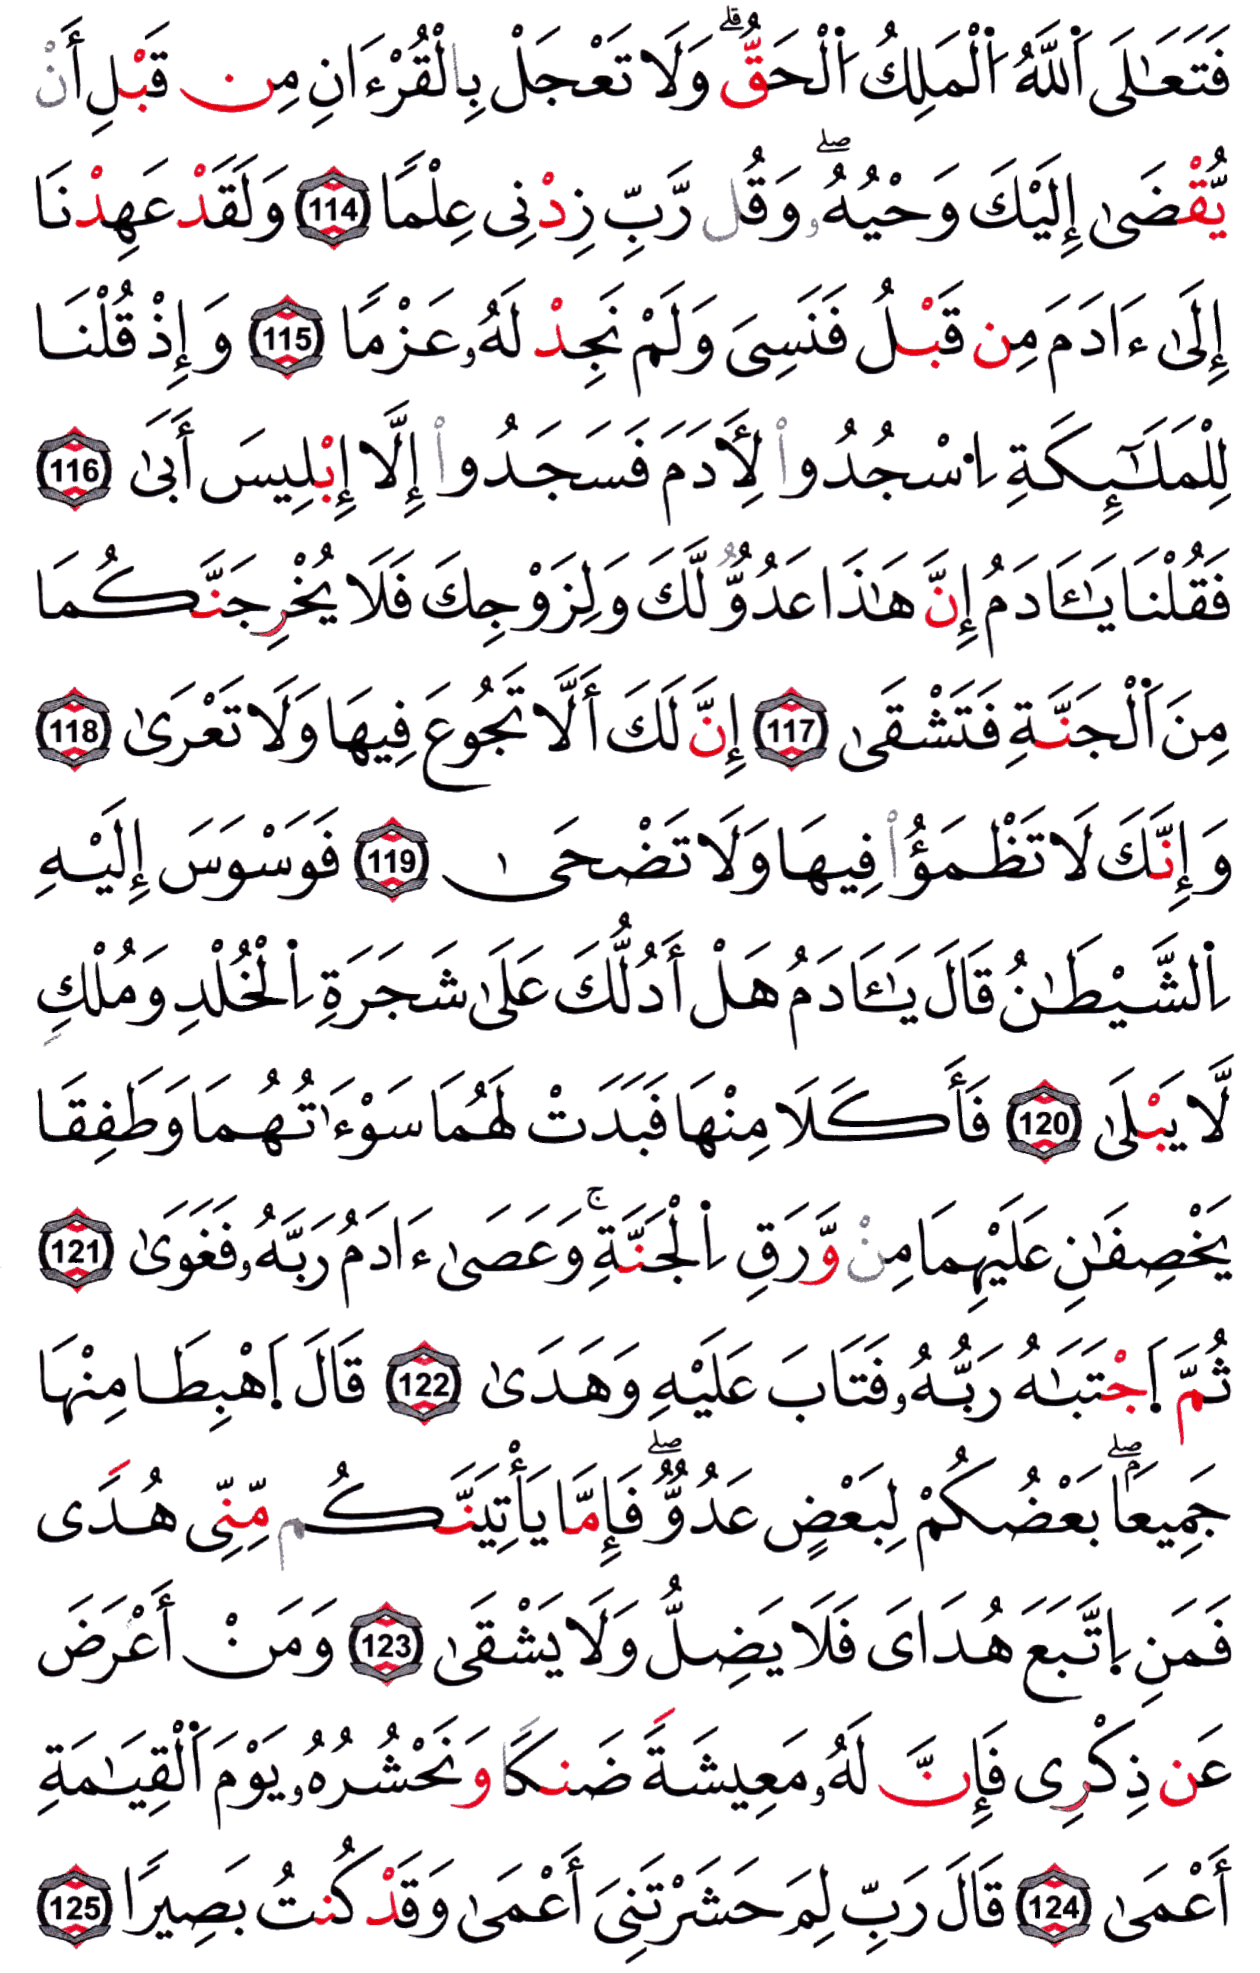 فَتَعَـٰلَى اَ۬للَّهُ اُ۬لْمَلِكُ اُ۬لْحَقُّۗ وَلَا تَعْجَلْ بِالْقُرْءَانِ مِن قَبْلِ أَنْ
يُّقْضَىٰ إِلَيْكَ وَحْيُهُۥۖ وَقُل رَّبِّ زِدْنِى عِلْمًا 114 وَلَقَدْ عَهِدْنَا
إِلَىٰ ءَادَمَ مِن قَبْلُ فَنَسِىَ وَلَمْ نَجِدْ لَهُۥ عَزْمًا 115 وَإِذْ قُلْنَا
لِلْمَلَـٰٓئِكَةِ اِ۟سْجُدُوا۟ لِأَدَمَ فَسَجَدُوا۟ إِلَّا إِبْلِيسَ أَبَىٰ 116
فَقُلْنَا يَـٰـَٔادَمُ إِنَّ هَـٰذَا عَدُوٌّ لَّكَ وَلِزَوْجِكَ فَلَا يُخْرِجَنَّكُمَا
مِنَ اَ۬لْجَنَّةِ فَتَشْقَىٰ 117 إِنَّ لَكَ أَلَّا تَجُوعَ فِيهَا وَلَا تَعْرَىٰ 118
وَإِنَّكَ لَا تَظْمَؤُا۟ فِيهَا وَلَا تَضْحَىٰ 119 فَوَسْوَسَ إِلَيْهِ
اِ۬لشَّيْطَـٰنُ قَالَ يَـٰـَٔادَمُ هَلْ أَدُلُّكَ عَلَىٰ شَجَرَةِ اِ۬لْخُلْدِ وَمُلْكٍ
لَّا يَبْلَىٰ 120 فَأَكَلَا مِنْهَا فَبَدَتْ لَهُمَا سَوْءَٰتُهُمَا وَطَفِقَا
يَخْصِفَـٰنِ عَلَيْهِمَا مِنْ وَّرَقِ اِ۬لْجَنَّةِۚ وَعَصَىٰ ءَادَمُ رَبَّهُۥ فَغَوَىٰ 121
ثُمَّ اَ۪جْتَبَـٰهُ رَبُّهُۥ فَتَابَ عَلَيْهِ وَهَدَىٰ 122 قَالَ اَ۪هْبِطَا مِنْهَا
جَمِيعَۢاۖ بَعْضُكُمْ لِبَعْضٍ عَدُوٌّۖ فَإِمَّا يَأْتِيَنَّكُم مِّنِّى هُدًى
فَمَنِ اِ۪تَّبَعَ هُدَاىَ فَلَا يَضِلُّ وَلَا يَشْقَىٰ 123 وَمَنْ أَعْرَضَ
عَن ذِكْرِى فَإِنَّ لَهُۥ مَعِيشَةً ضَنكًا وَنَحْشُرُهُۥ يَوْمَ اَ۬لْقِيَـٰمَةِ
أَعْمَىٰ 124 قَالَ رَبِّ لِمَ حَشَرْتَنِىَ أَعْمَىٰ وَقَدْ كُنتُ بَصِيرًا 125